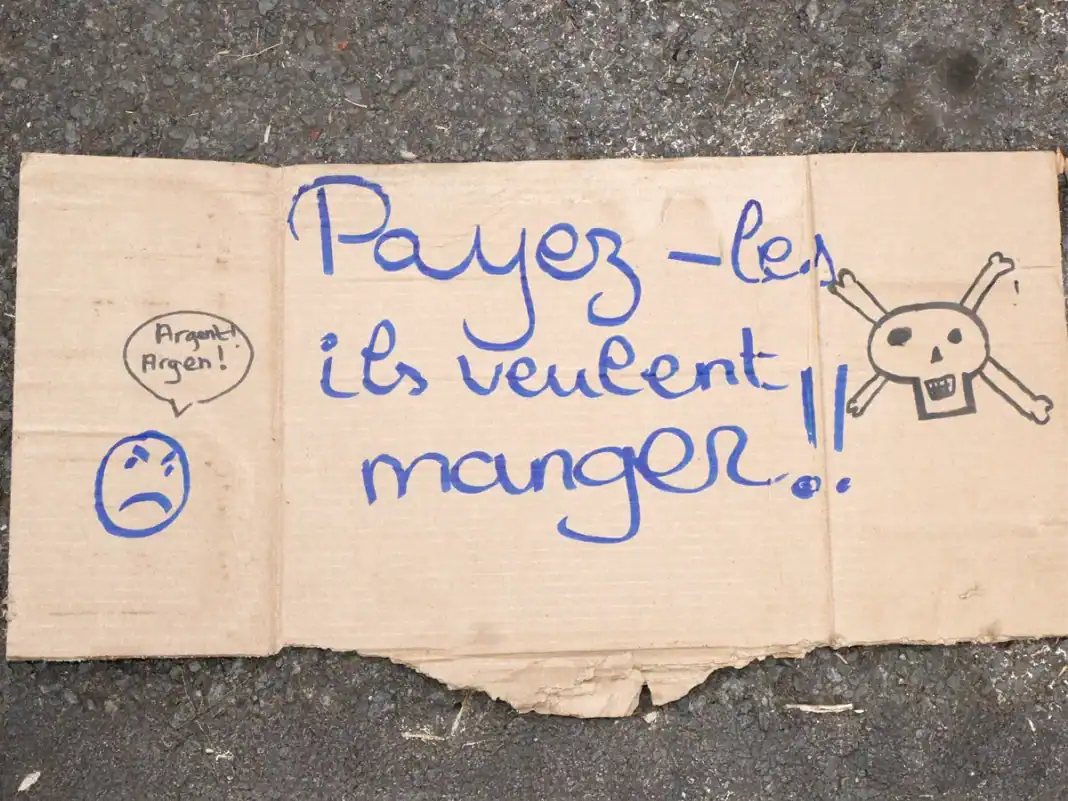 Payez-les
ils veulent
manger!!
Argent!
Argen!